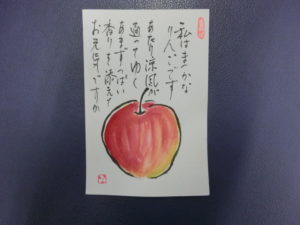 私はまっかな
りんごです
あたり涼風が
通ってゆく
あまずっぱい
香りを添えて
お元気ですか